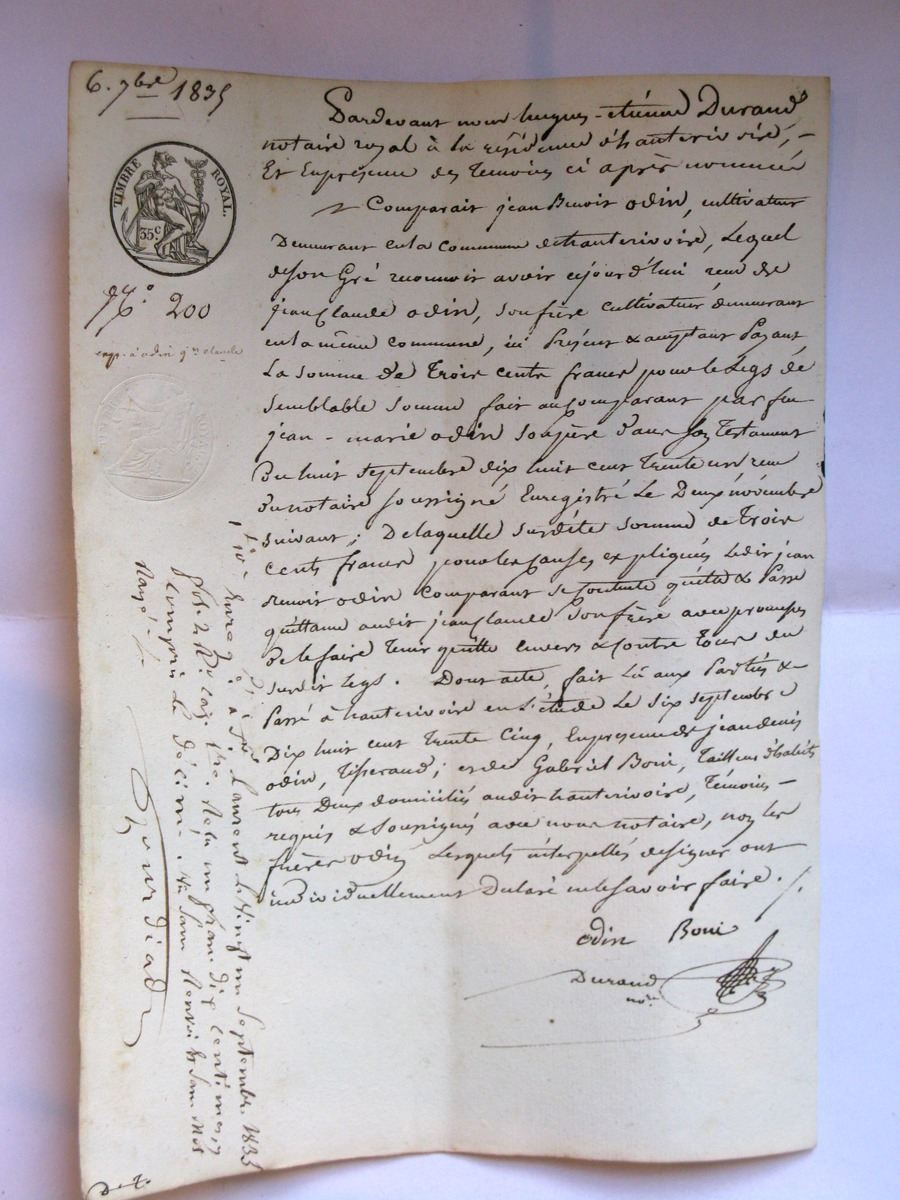 6. 7bre 1835
TIMBRE ROYAL.
35c
No. 200
exp. à odin jn claude
Pardevant nous hugues-etiénne Durand
notaire royal à la résidence d'hauterivoire,
Et Enprésence des Temoins ci après nommés
Comparait jean Benoit odin, cultivateur
Demeurant enla commune d'hauterivoire, Lequel
deson Gré reconnoit avoir cejourd'hui reçu de
jean Claude odin, son frère cultivateur demeurant
enla même commune, ici Présent & acceptant Payant,
La somme de Trois cents francs pour le Legs de
semblable somme fait aucomparant par feu
jean-marie odin son père dans son Testament
Du huit septembre dix huit cent Trente un reçu
Du notaire soussigné Enregistré Le Deux novembre
suivant; De laquelle susdite somme de Trois
cents francs pour les causes expliqués Ledit jean
Benoit odin comparant se contente quitte & Passe
quittance audit jean Claude son frère avec promesses
De le faire Tenir quitte envers & contre Tous du
susdit Legs. Dont acte, fait Lû aux Partiés &
Passé à hauterivoire en L'étude Le six septembre
Dix huit cent Trente Cinq, Enprésence de jean denis
odin, Tisserand; et de Gabriel Boni, Tailleur d'habits
tous Deux domiciliés audit hauterivoire, Témoins
requis & soussignés avec nous notaire, non les
frères odin Lesquels interpellés de signer ont
individuellement Déclaré ne le savoir faire.
odin Boni
Durand
nore
à St Laurent le vingt un Septembre 1835
fol. 2 Ro Case Reçu un franc dix centimes y
compris le décime.